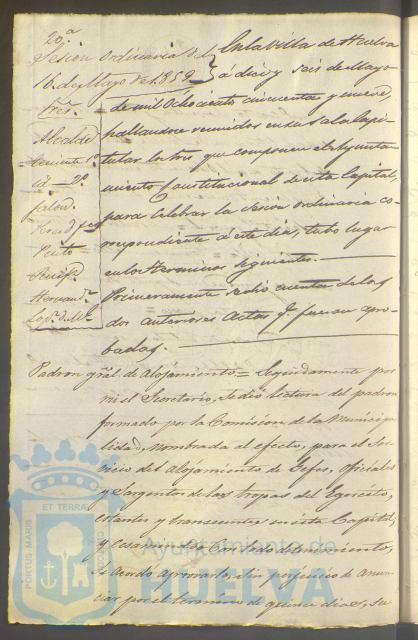 20ª
Sesion Ordinaria del
16 de Mayo de 1859
Sres.
Alcalde
Teniente 1º
id - 2º
Pinto
Hernandz
En la Villa de Huelva
á diez y seis de Mayo
de mil ochociento cincuenta y nueve,
hallandose reunidos en su Sala Capi-
tular los Sres que componen el Ayunta-
miento Constitucional de esta Capital,
para celebrar la sesion ordinaria co-
rrespondiente á este dia, tubo lugar
en los terminos siguientes.
Primeramente se dio cuenta de las
dos anteriores Actas qe fueron apro-
badas.
Padron gral de Alojamiento = Seguidamente por
mi el Secretario, se dio lectura del padron
formado por la Comision de la Municipa-
lidad, nombrada al efecto, para el Ser-
vicio del Alojamiento de Gefes, oficiales
y Sargentos de las tropas del Egercito,
estantes y transeuntes en esta Capital,
y
se Acordó aprovarlo, sin perjuicio de Anun-
ciar por el termino de quince dias, su
PORTUS MARIS ET TERRAE CUSTODIA
Ayuntamiento de
HUELVA